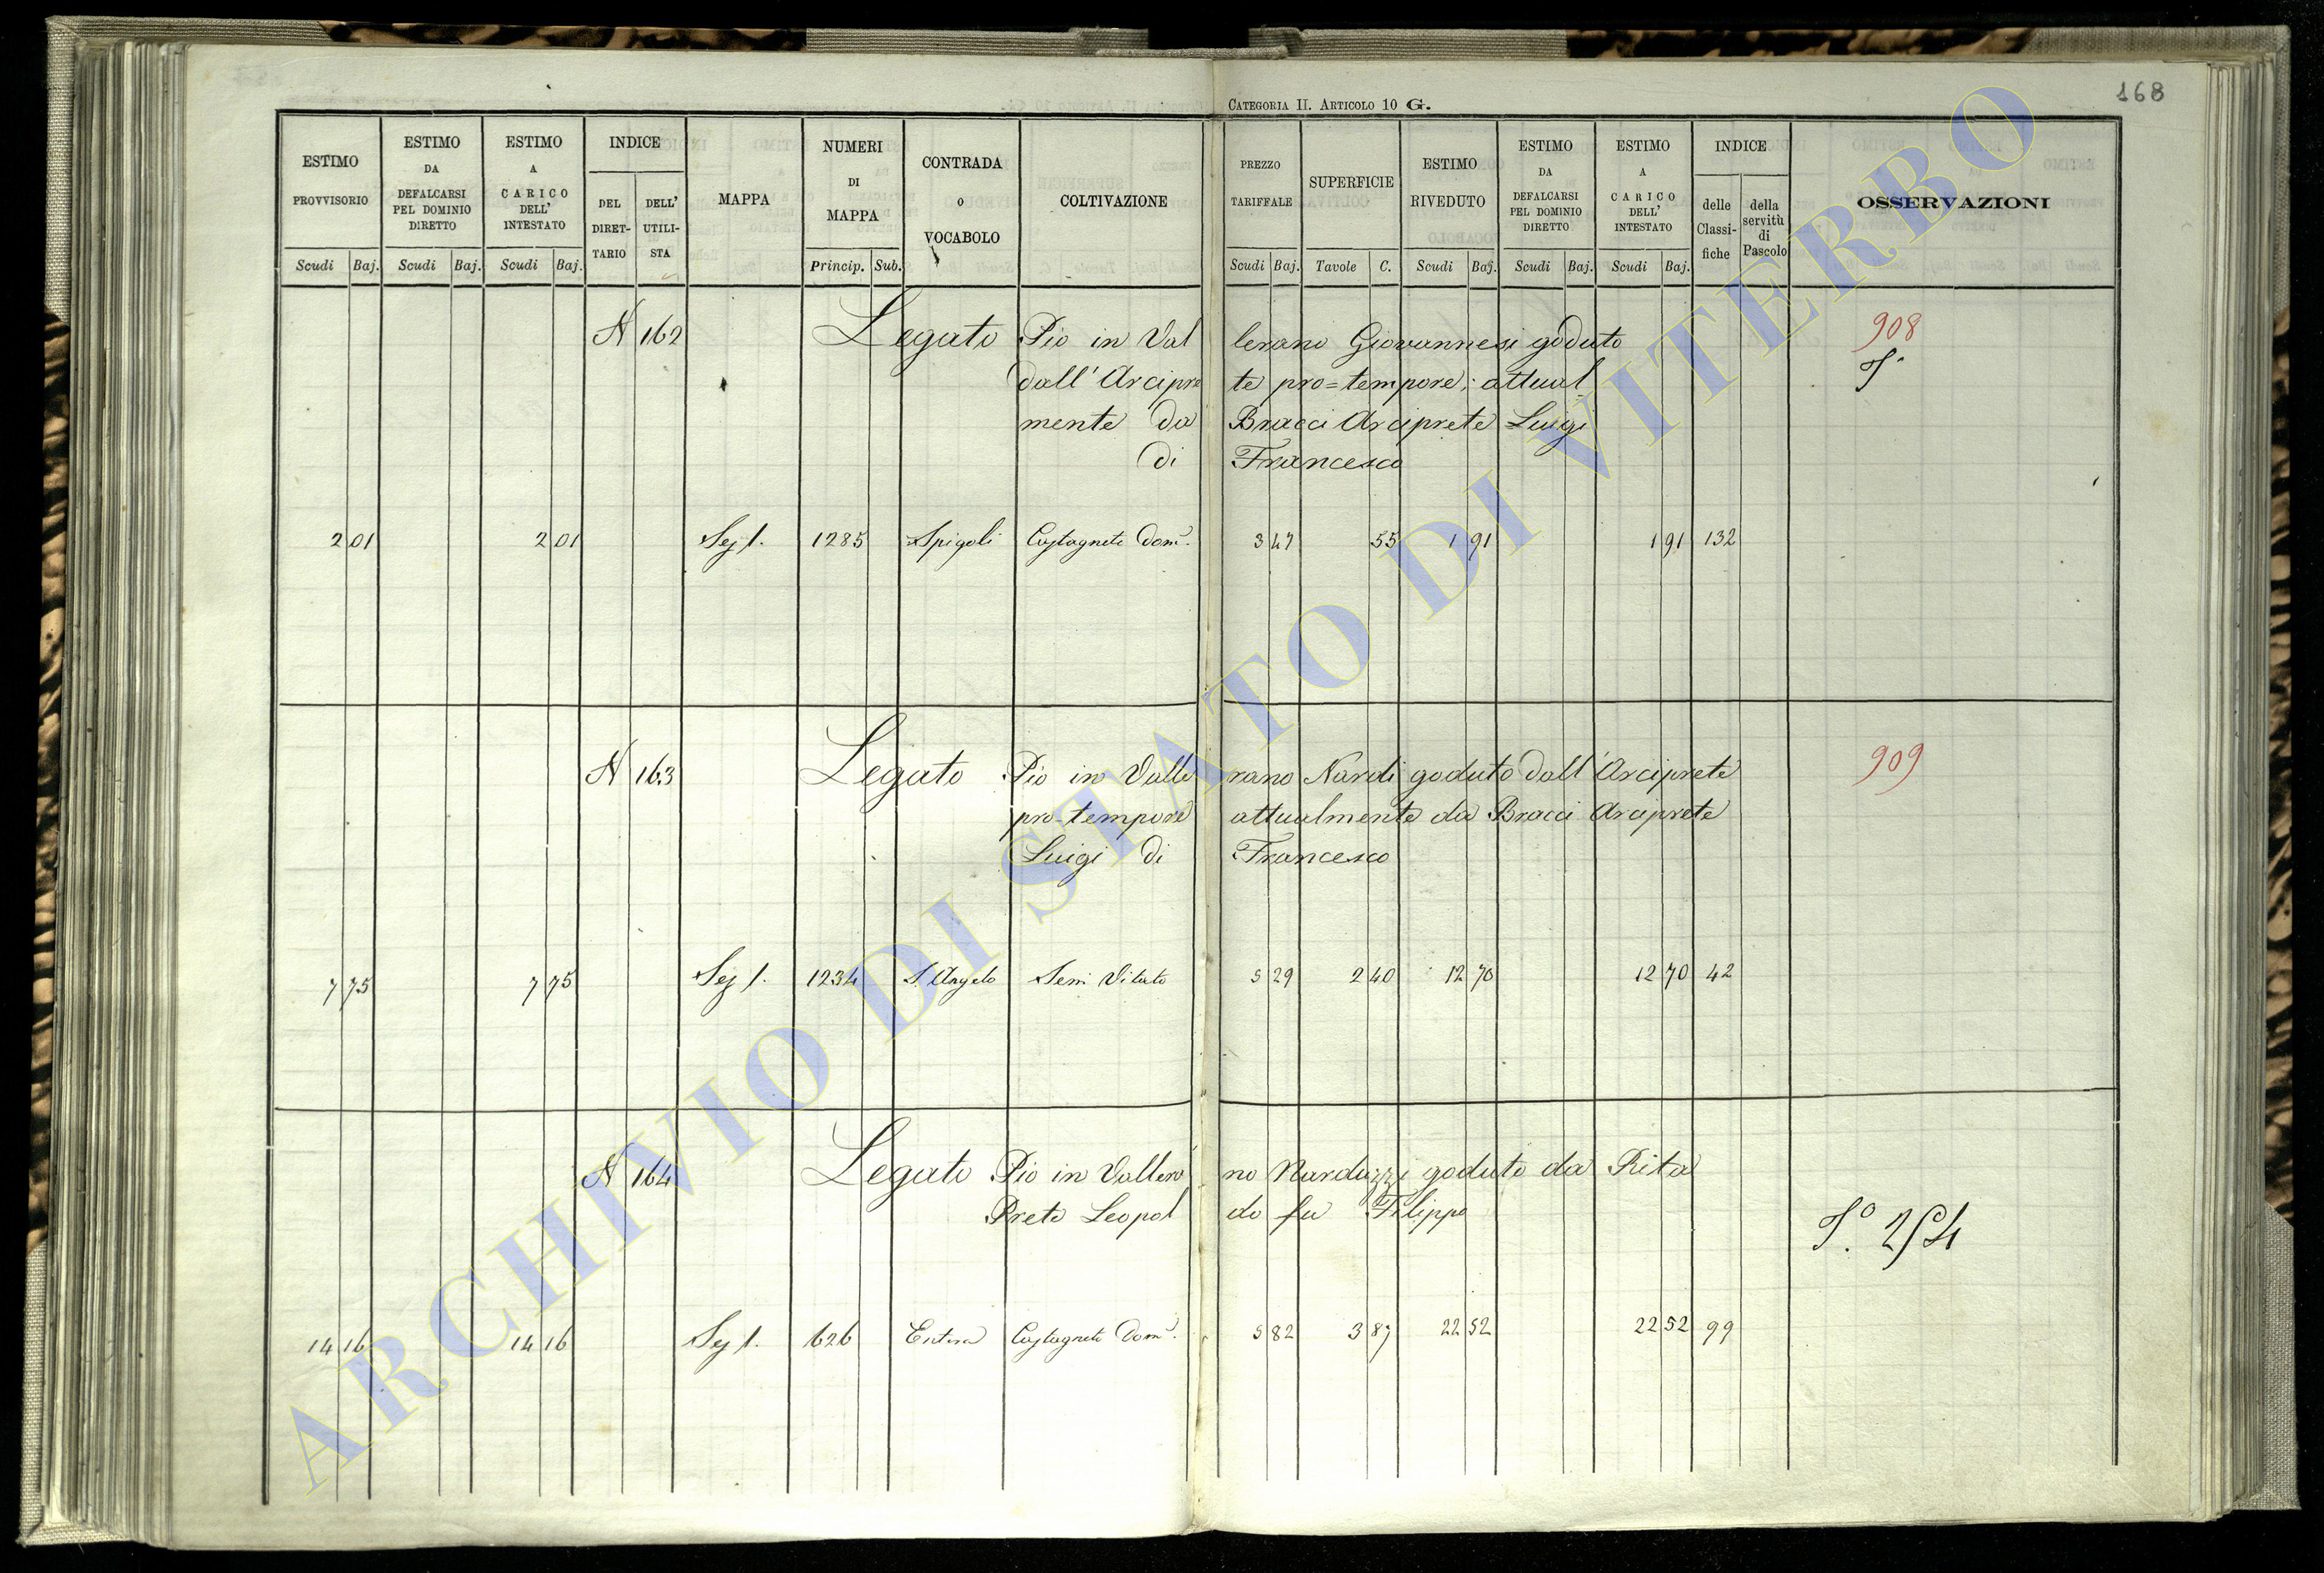 168
CATEGORIA II. ARTICOLO 10 G.
ESTIMO PROVVISORIO
ESTIMO DA DEFALCARSI PEL DOMINIO DIRETTO
ESTIMO A CARICO DELL' INTESTATO
INDICE
DEL DIRET-TARIO
DELL' UTILI-STA
MAPPA
NUMERI DI MAPPA
CONTRADA O VOCABOLO
COLTIVAZIONE
PREZZO TARIFFALE
SUPERFICIE
ESTIMO RIVEDUTO
ESTIMO DA DEFALCARSI PEL DOMINIO DIRETTO
ESTIMO A CARICO DELL' INTESTATO
INDICE
delle Classi-fiche
della servitù di Pascolo
OSSERVAZIONI
Scudi Baj. Scudi Baj. Scudi Baj. Princip. Sub. Scudi Baj. Tavole C. Scudi Baj. Scudi Baj. Scudi Baj.
N 162 Legato Pio in Val lerano Giovannesi goduto 908
dall' Arcipre te pro=tempore; attual
mente da Bracci Arciprete Luigi
di Francesco
2 01 2 01 Sez 1. 1285 Spigoli Castagneto Dom. 3 47 55 1 91 1 91 132
N 163 Legato Pio in Valle rano Nardi goduto dall' Arciprete 909
pro-tempore attualmente da Bracci Arciprete
Luigi di Francesco
7 75 7 75 Sez 1. 1234 S. Angelo Sem Vitato 5 29 2 40 12 70 12 70 42
N 164 Legato Pio in Vallera no Narduzzi goduto da Rita
Prete Leopol do fu Filippo
14 16 14 16 Sez 1. 626 Castagneto Dom. 5 82 3 87 22 52 22 52 99
ARCHIVIO DI STATO DI VITERBO